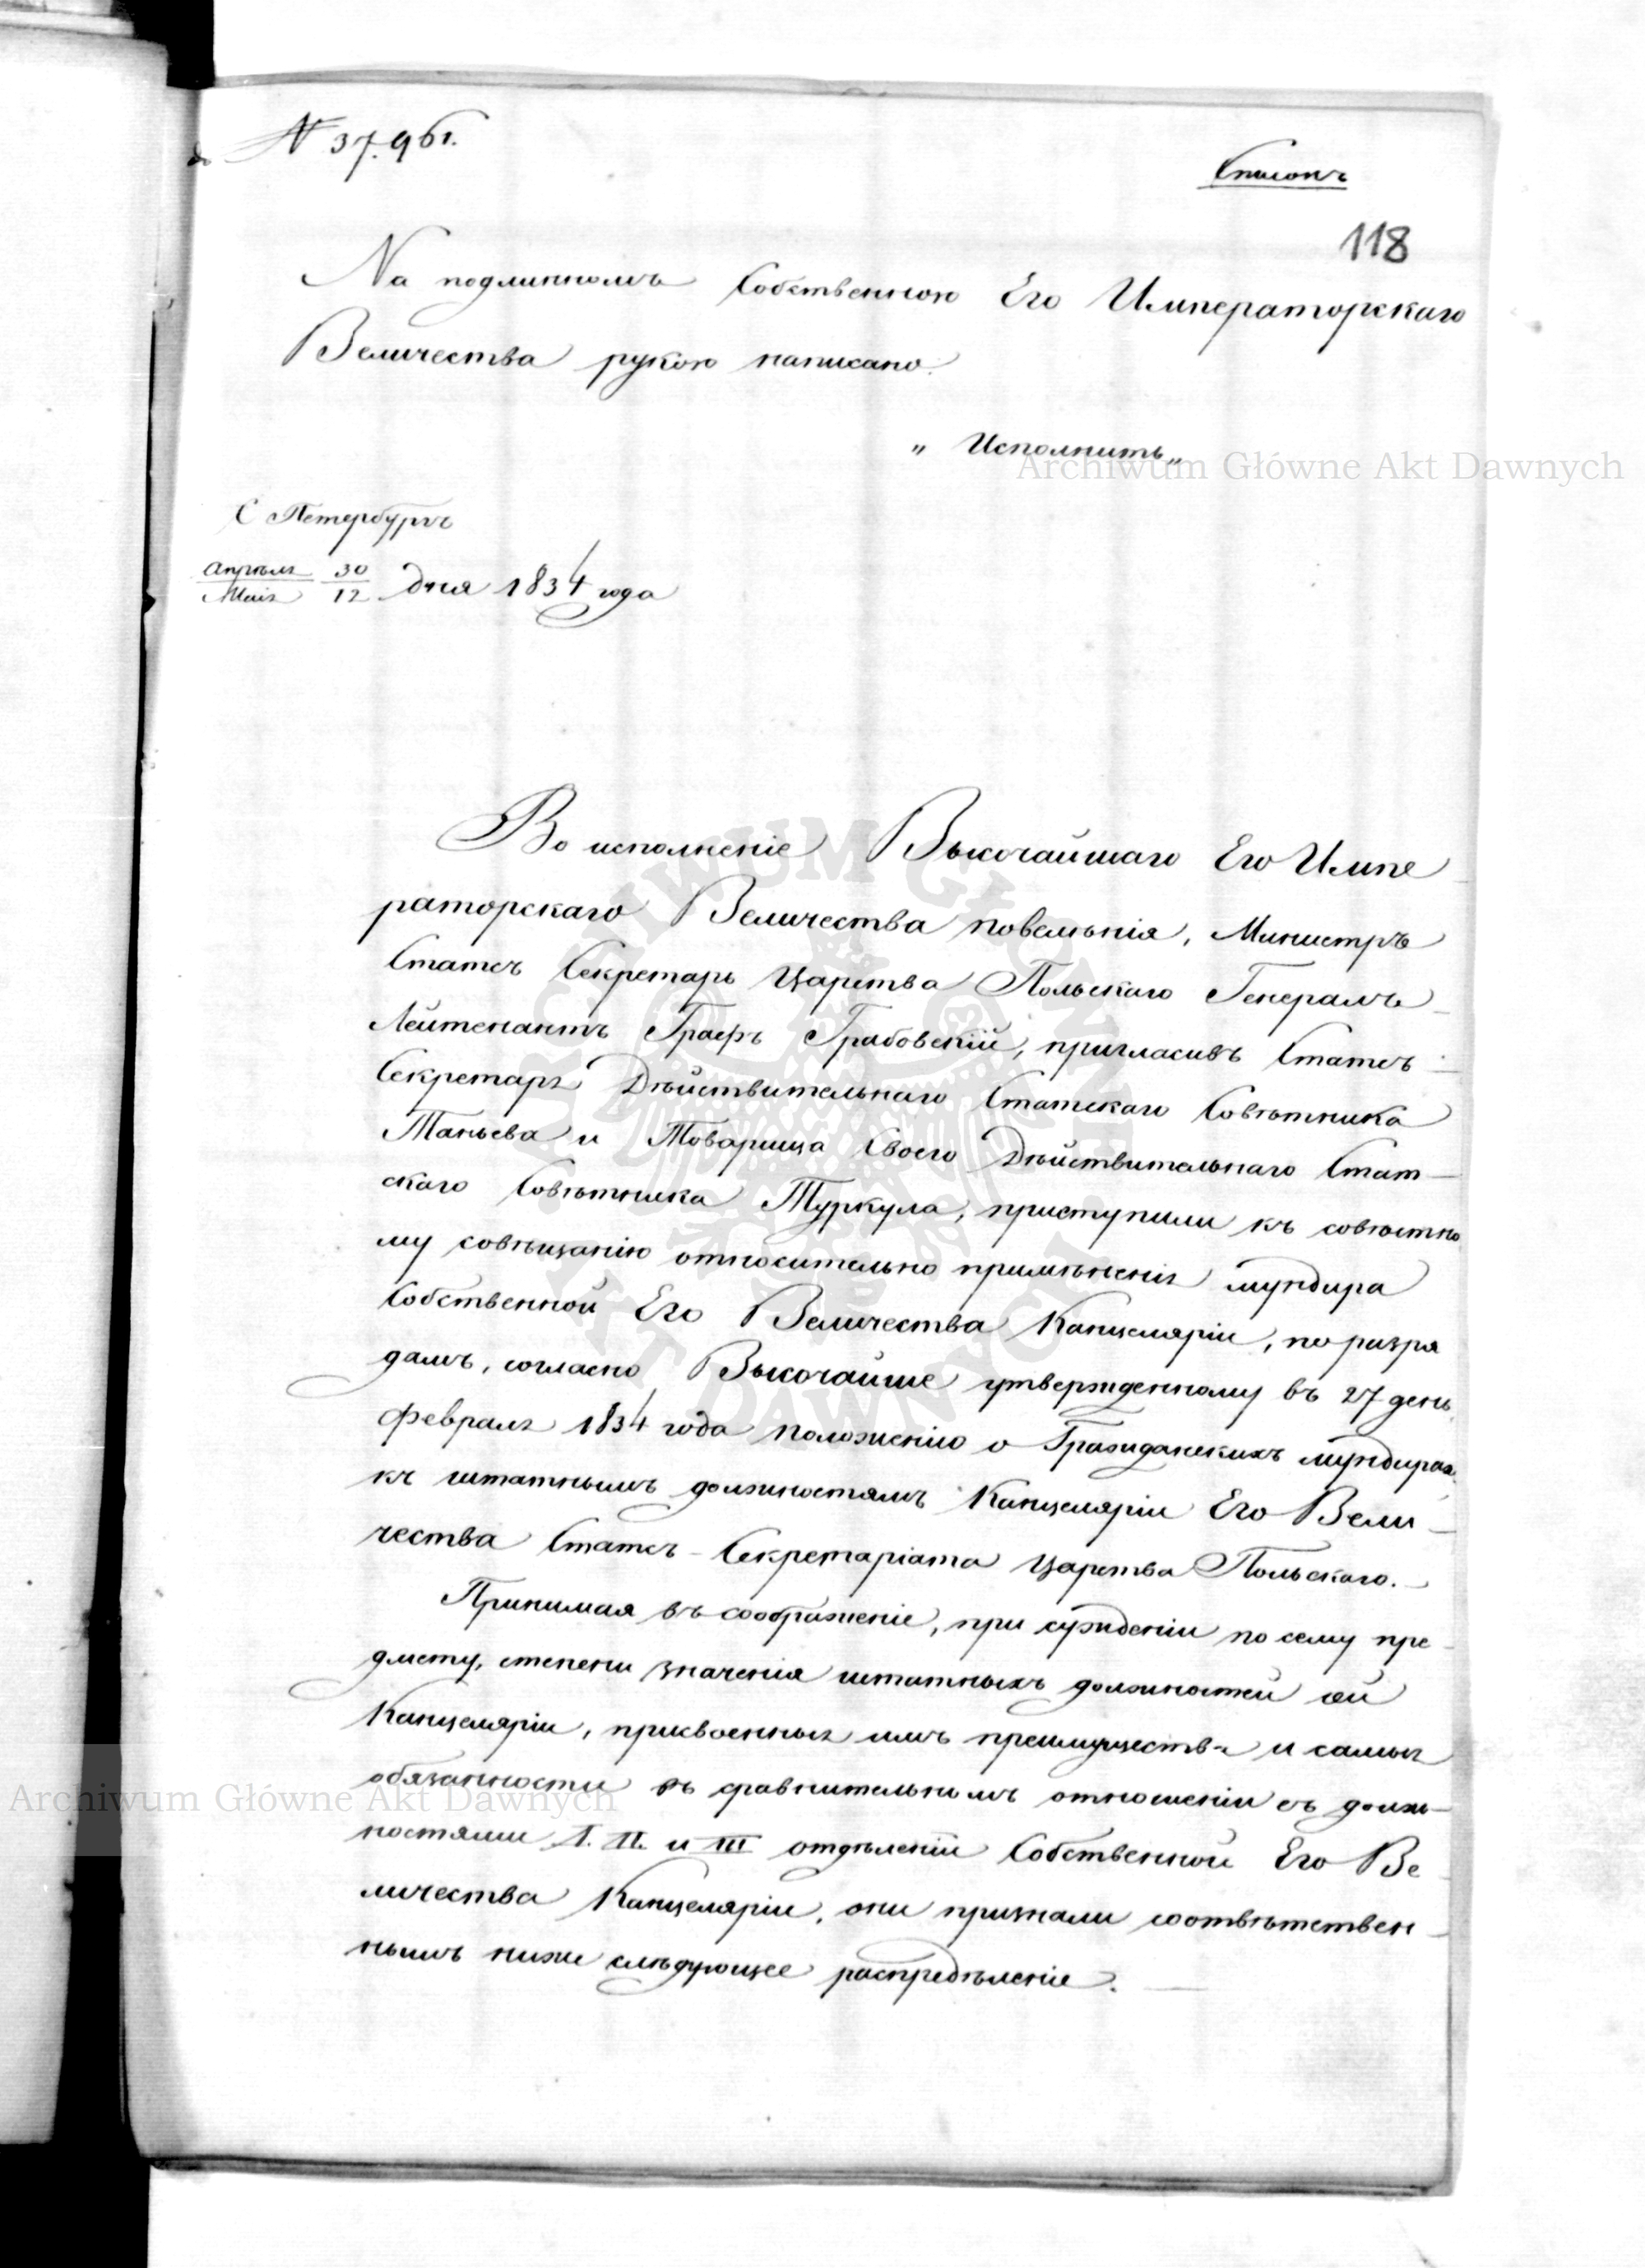 N 37.961.
Списокъ
118
На подлинномъ Собственною Его Императорскаго
Величества рукою написано:
„ Исполнить „
Archiwum Główne Akt Dawnych
С Петербургъ
Апрѣля 30
Маія 12 дня 1834 года
Во исполненіе Высочайшаго Его Импе
раторскаго Величества повелѣнія, Министръ
Статсъ Секретарь Царства Польскаго Генералъ-
Лейтенантъ Графъ Грабовскій, пригласивъ Статсъ-
Секретаря Дѣйствительнаго Статскаго Совѣтника
Танѣева и Товарища Своего Дѣйствительнаго Стат-
скаго Совѣтника Туркула, приступили къ совѣстно
му совѣщанію относительно примѣненія мундира
Собственной Его Величества Канцеляріи, по разря
дамъ, согласно Высочайше утвержденному въ 27 день
Февраля 1834 года положенію о Гражданскихъ мундирах
къ штатнымъ должностямъ Канцеляріи Его Вели-
чества Статсъ-Секретаріата Царства Польскаго.-
Принимая въ соображеніе, при сужденіи по сему пре-
дмету, степени значенія штатныхъ должностей сей
Канцеляріи, присвоенныя имъ преимуществъ и самыя
обязанности въ сравнительномъ отношеніи съ долж-
Archiwum Główne Akt Dawnych
ностями I. II. и III отдѣленій Собственной Его Ве
личества Канцеляріи, они признали соотвѣтствен-
нымъ ниже слѣдующее распредѣленіе.
ARCHIWUM GŁÓWNE AKT DAWNYCH